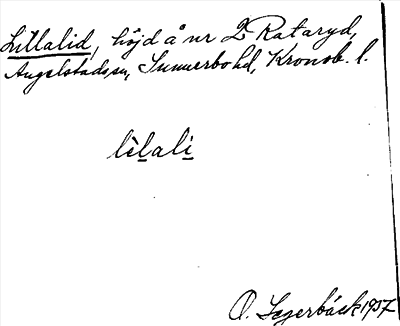 Lillalid, höjd å nr 2 Rataryd,
Angelstads sn, Sunnerbo hd, Kronob. l.
lèlali
O. Segerbäck 1937